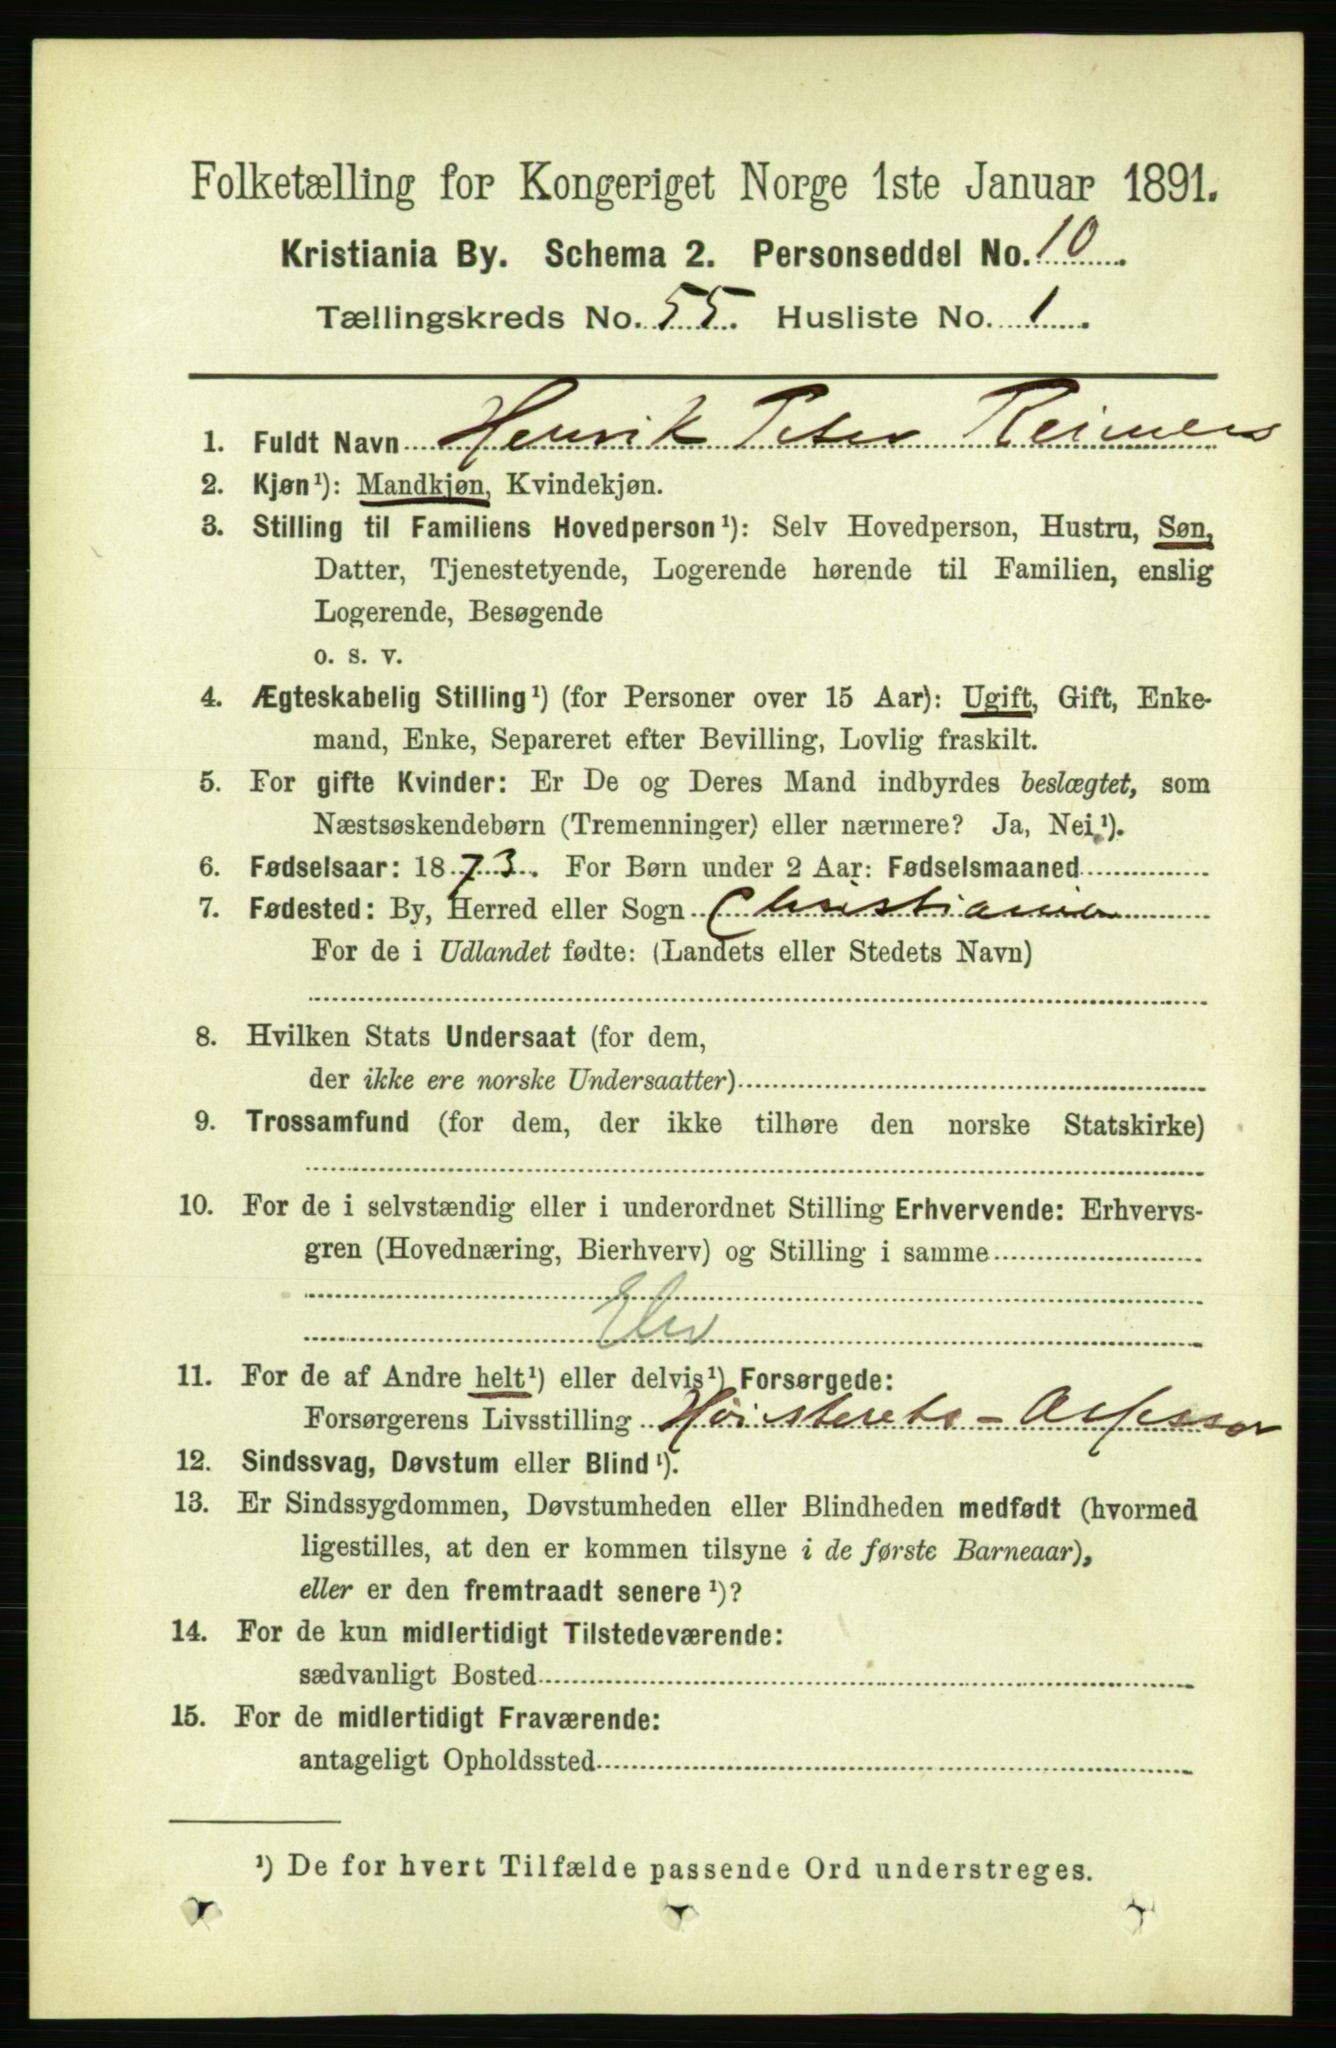 Folketælling for Kongeriget Norge 1ste Januar 1891.
Kristiania By. Schema 2. Personseddel No. 10.
Tællingskreds No. 55. Husliste No. 1.
1. Fuldt Navn Henrik Peter Reimers
2. Kjøn¹): Mandkjøn, Kvindekjøn.
3. Stilling til Familiens Hovedperson¹): Selv Hovedperson, Hustru, Søn,
Datter, Tjenestetyende, Logerende hørende til Familien, enslig
Logerende, Besøgende
o. s. v.
4. Ægteskabelig Stilling¹) (for Personer over 15 Aar): Ugift, Gift, Enke-
mand, Enke, Separeret efter Bevilling, Lovlig fraskilt.
5. For gifte Kvinder: Er De og Deres Mand indbyrdes beslægtet, som
Næstsøskendebørn (Tremenninger) eller nærmere? Ja, Nei¹).
6. Fødselsaar: 1873. For Børn under 2 Aar: Fødselsmaaned
7. Fødested: By, Herred eller Sogn Christiania
For de i Udlandet fødte: (Landets eller Stedets Navn)
8. Hvilken Stats Undersaat (for dem,
der ikke ere norske Undersaatter)
9. Trossamfund (for dem, der ikke tilhøre den norske Statskirke)
10. For de i selvstændig eller i underordnet Stilling Erhvervende: Erhvervs-
gren (Hovednæring, Bierhverv) og Stilling i samme
Elev
11. For de af Andre helt¹) eller delvis¹) Forsørgede:
Forsørgerens Livsstilling Høisterets-Assessor
12. Sindssvag, Døvstum eller Blind¹).
13. Er Sindssygdommen, Døvstumheden eller Blindheden medfødt (hvormed
ligestilles, at den er kommen tilsyne i de første Barneaar),
eller er den fremtraadt senere¹)?
14. For de kun midlertidigt Tilstedeværende:
sædvanligt Bosted
15. For de midlertidigt Fraværende:
antageligt Opholdssted
¹) De for hvert Tilfælde passende Ord understreges.